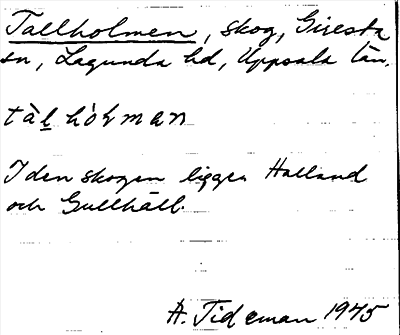 Tallholmen, skog, Giresta
sn, Lagunda hd, Uppsala län.
tàl hòlman
I den skogen ligger Halland
och Gullhäll.
A. Tideman 1945